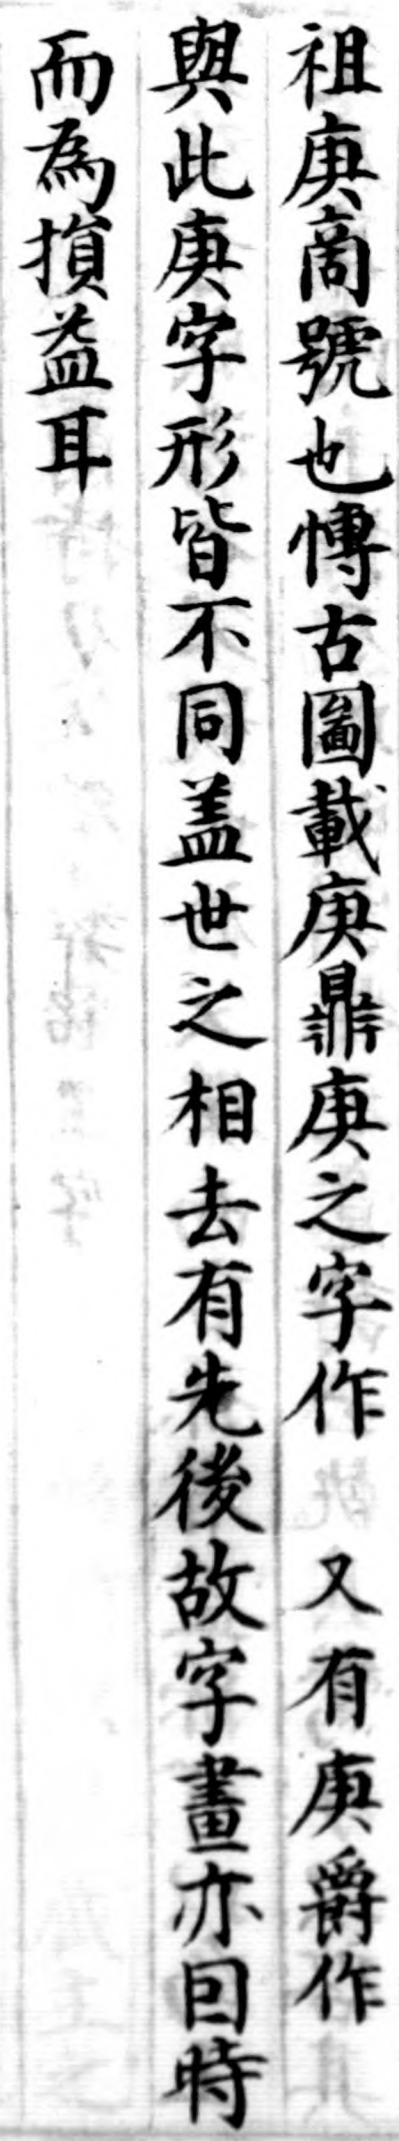 祖庚商號也愽古圖載庚鼎庚之字作　又有庚爵作
與此庚字形皆不同盖世之相去有先後故字畫亦因時
而為損益耳